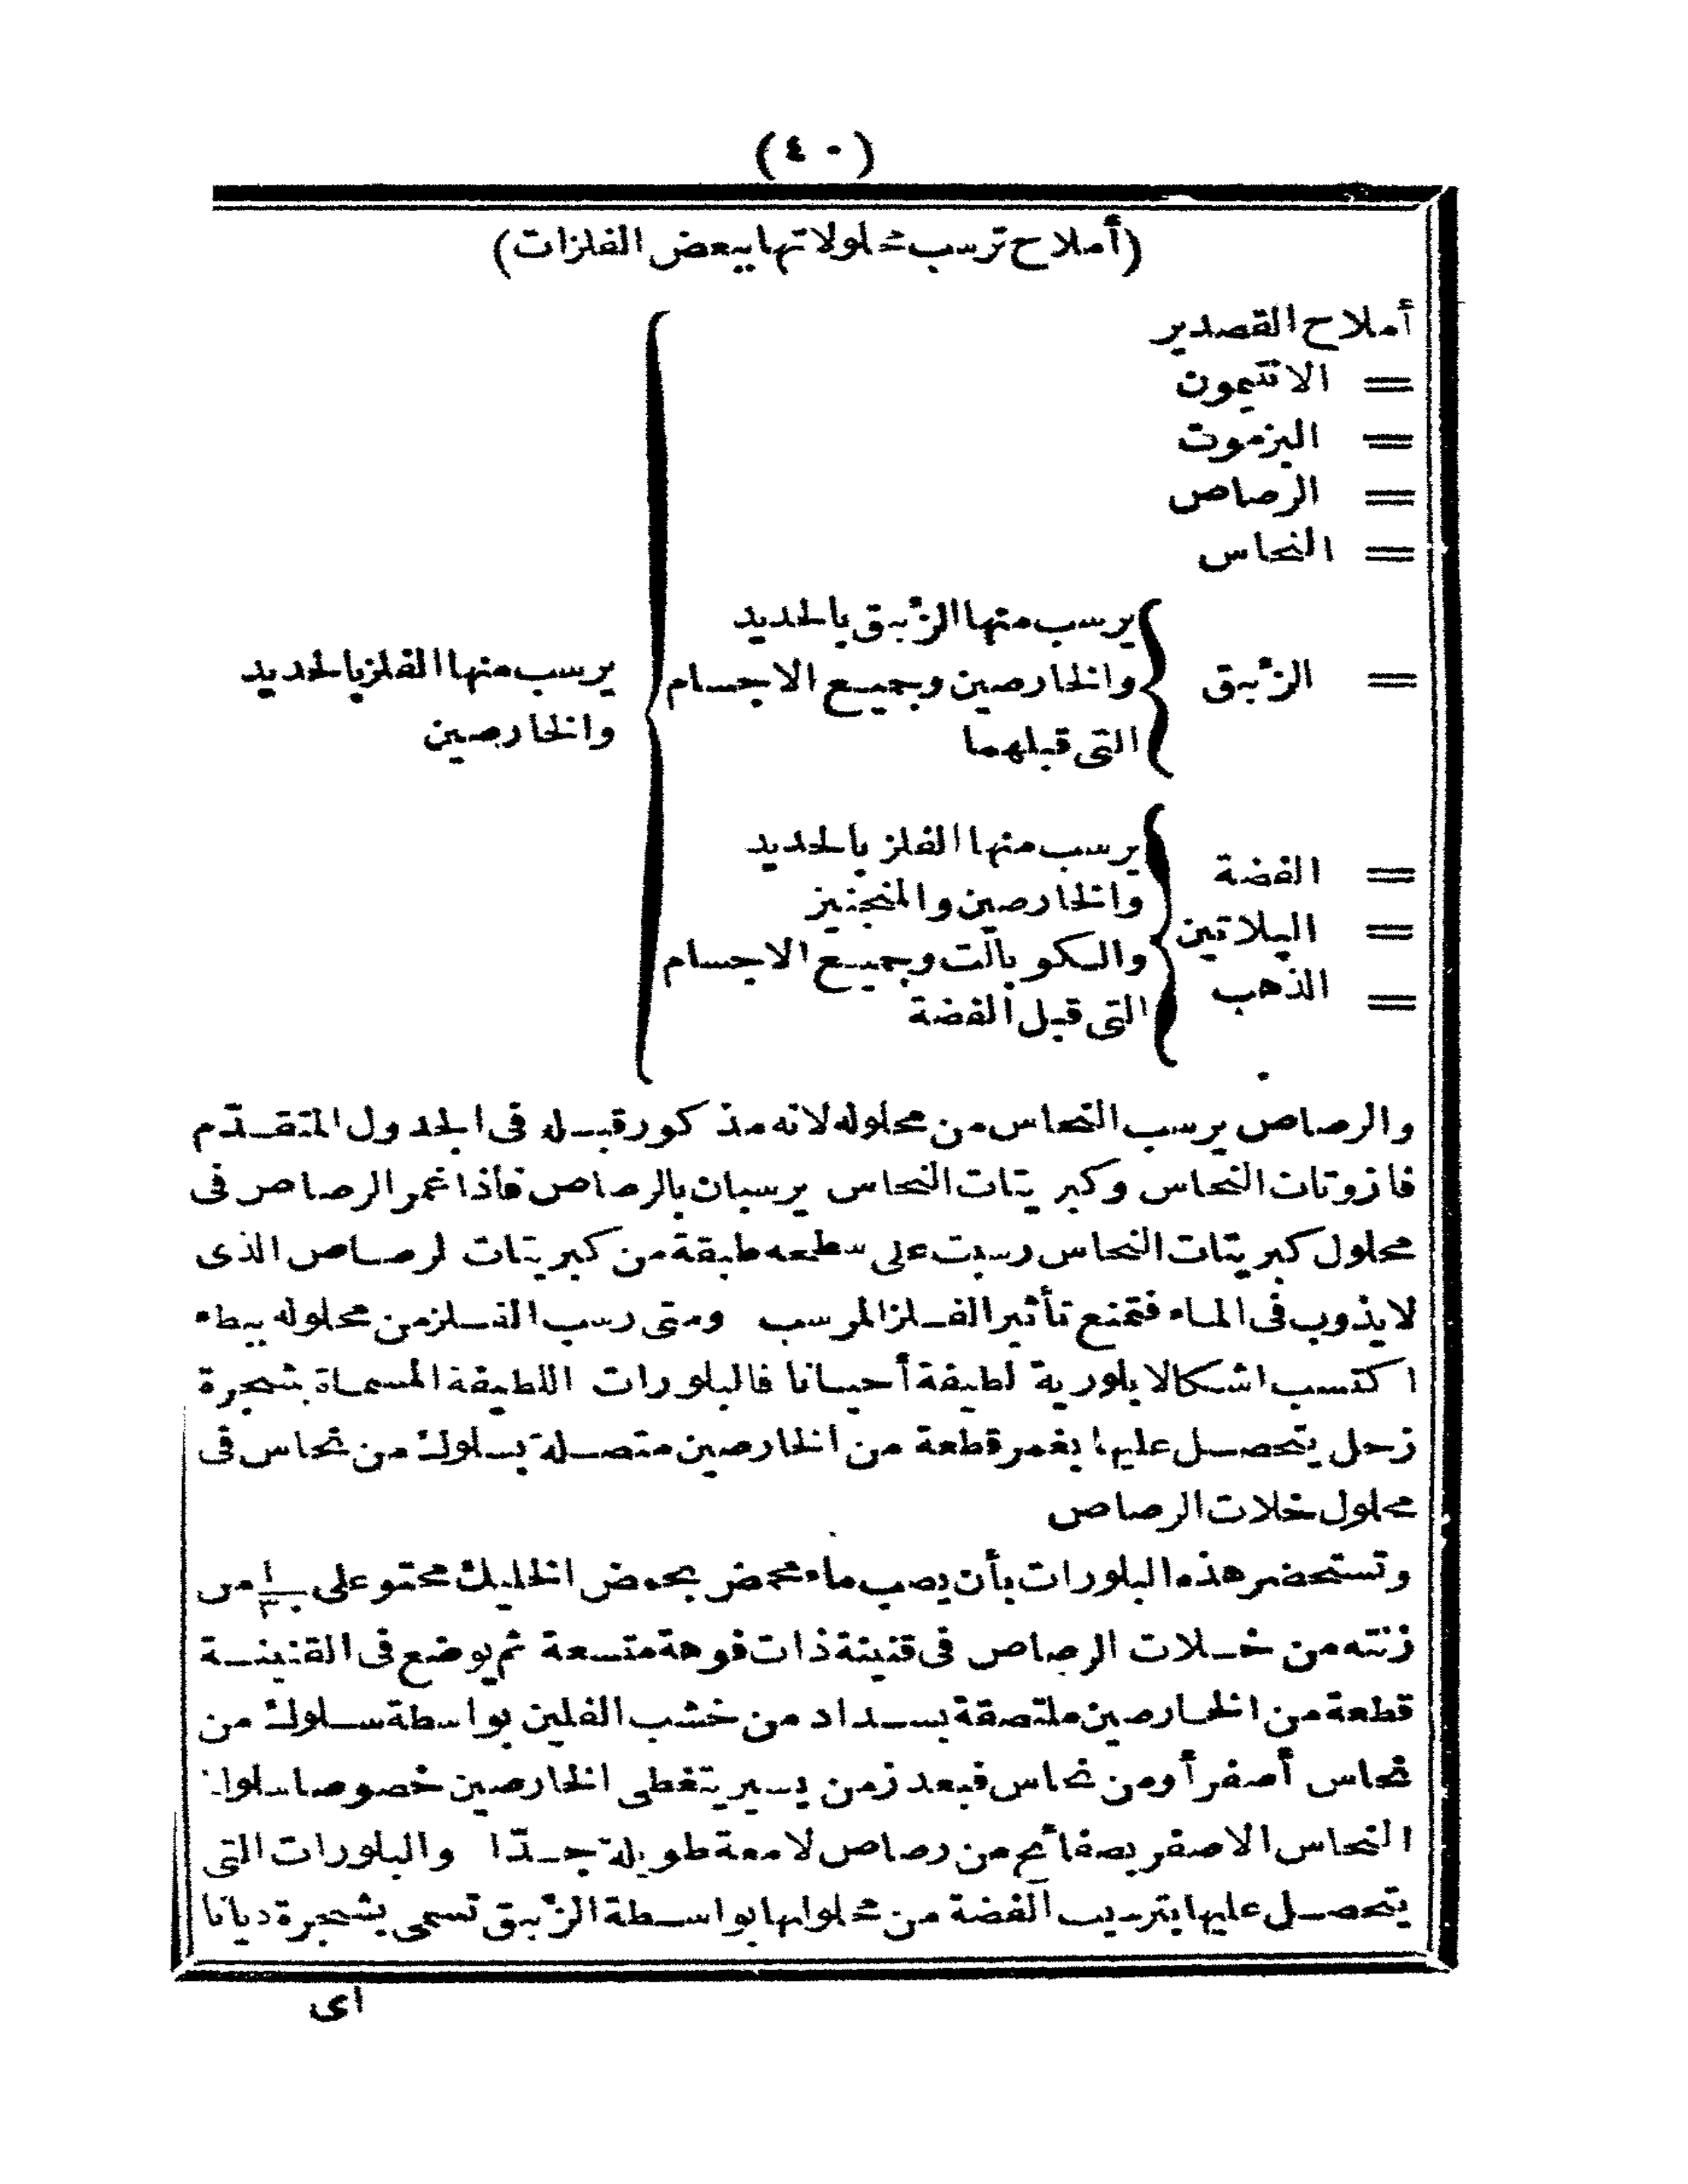 (٤٠)
(أملاح ترسب محلولاتها ببعض الفلزات)
أملاح القصدير
= الانتيمون
= البزموت
= الرصاص
= النحاس
= الزئبق
يرسب منها الزئبق بالحديد
والخارصين وجميع الاجسام
التى قبلهما
= الفضة
= البلاتين
= الذهب
يرسب منها الفلز بالحديد
والخارصين والمنجنيز
والكوبالت وجميع الاجسام
التى قبل الفضة
يرسب منها الفلز بالحديد
والخارصين
والرصاص يرسب النحاس من محلوله لانه مذكور قبله فى الجدول المتقدّم
فازوتات النحاس وكبريتات النحاس يرسبان بالرصاص فاذا غمر الرصاص فى
محلول كبريتات النحاس رسبت على سطحه طبقة من كبريتات لرصاص الذى
لا يذوب فى الماء فتمنع تأثير الفلز المرسب ومتى رسب الفلز من محلوله ببطء
اكتسب اشكالا بلورية لطيفة أحيانا فالبلورات اللطيفة المسماة بشجرة
زحل يتحصل عليها بغمر قطعة من الخارصين متصلة بسلوك من نحاس فى
محلول خلات الرصاص
وتستحضر هذه البلورات بأن يصب ماء محمض بحمض الخليك محتو على ١/٣٠ من
زنته من خلات الرصاص فى قنينة ذات فوهة متسعة ثم يوضع فى القنينة
قطعة من الخارصين ملتصقة بسداد من خشب الفلين بواسطة سلوك من
نحاس أصفر أو من نحاس فبعد زمن يسير يتغطى الخارصين خصوصا سلوك
النحاس الاصفر بصفائح من رصاص لامعة طويلة جدّا والبلورات التى
يتحصل عليها بترسيب الفضة من محلولها بواسطة الزئبق تسمى بشجرة ديانا
اى